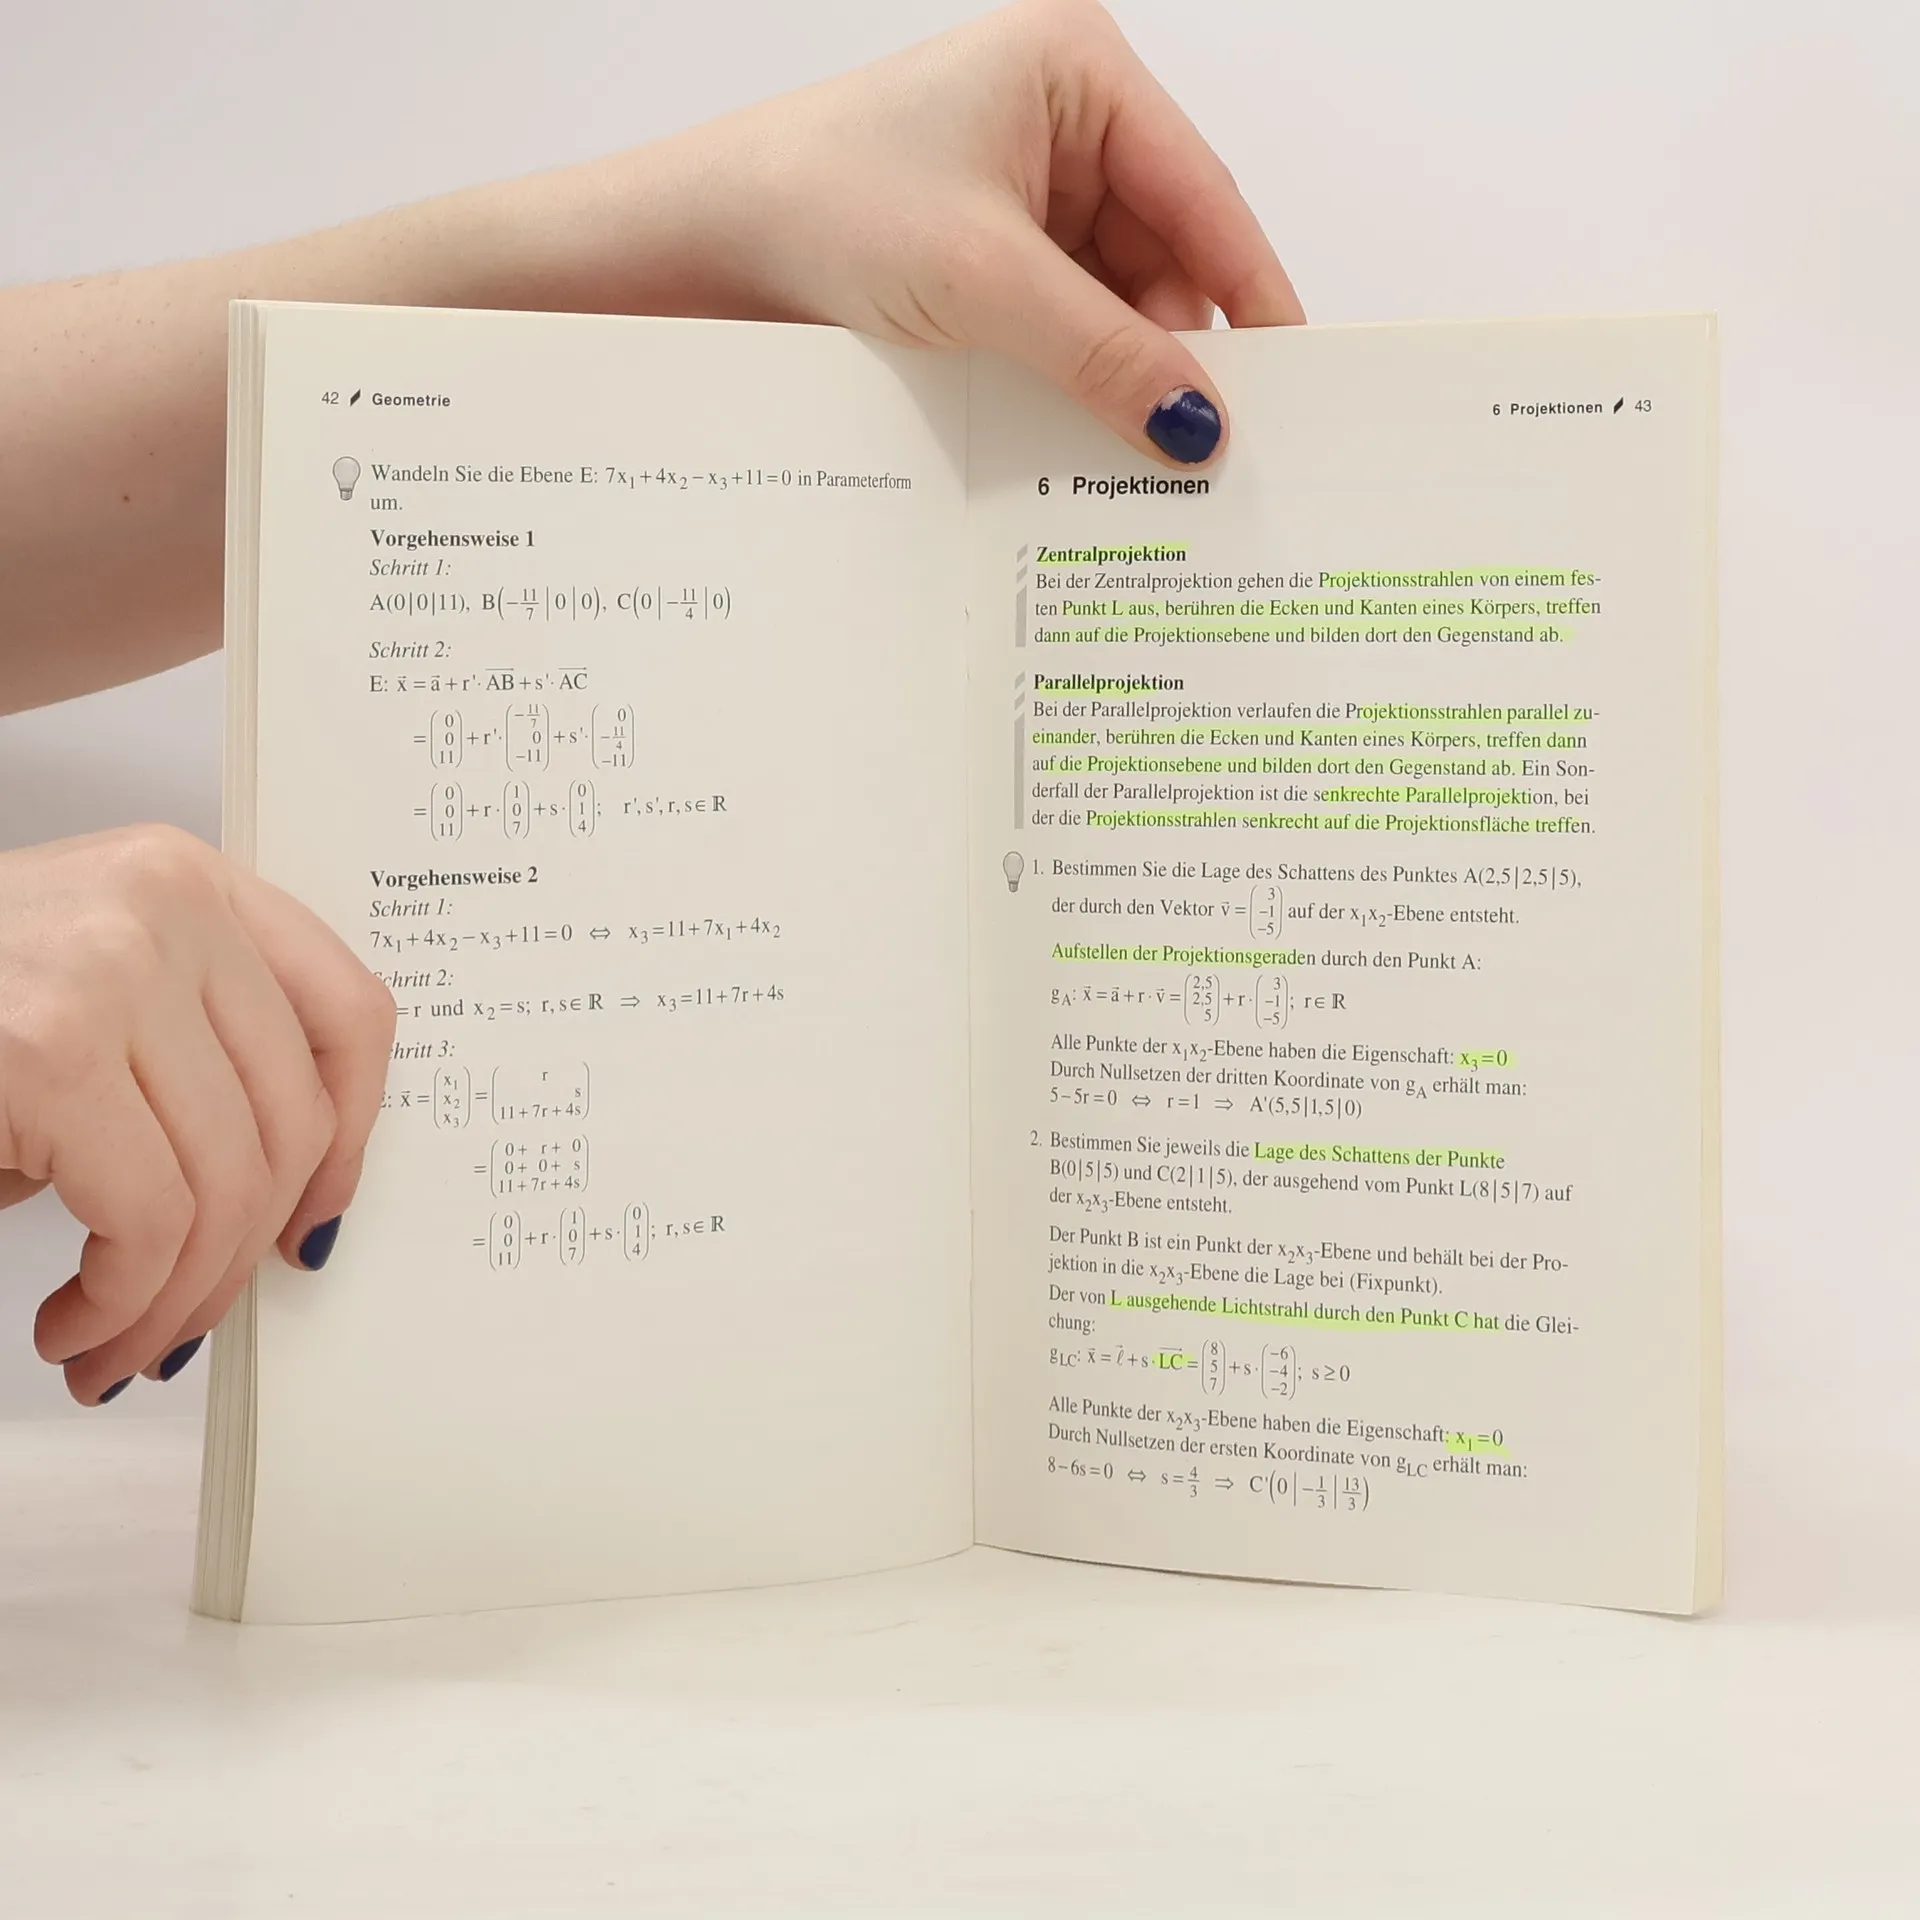 42 Geometrie
Wandeln Sie die Ebene E: 7x₁+4x₂−x₃+11=0 in Parameterform
um.
Vorgehensweise 1
Schritt 1:
A(0|0|11), B(−11/7|0|0), C(0|−11/4|0)
Schritt 2:
E: x⃗ = a⃗ + r'· AB⃗ + s'· AC⃗
= (0 0 11) + r'· (−11/7 0 −11) + s'· (0 −11/4 −11)
= (0 0 11) + r · (1 0 7) + s · (0 1 4); r', s', r, s ∈ ℝ
Vorgehensweise 2
Schritt 1:
7x₁+4x₂−x₃+11=0 ⇔ x₃=11+7x₁+4x₂
chritt 2:
=r und x₂=s; r, s∈ ℝ ⇒ x₃=11+7r+4s
hritt 3:
: x⃗ = (x₁ x₂ x₃) = (r s 11+7r+4s)
= (0+ r+ 0 0+ 0+ s 11+7r+4s)
= (0 0 11) + r · (1 0 7) + s · (0 1 4); r, s∈ ℝ
6 Projektionen 43
6 Projektionen
Zentralprojektion
Bei der Zentralprojektion gehen die Projektionsstrahlen von einem fes-
ten Punkt L aus, berühren die Ecken und Kanten eines Körpers, treffen
dann auf die Projektionsebene und bilden dort den Gegenstand ab.
Parallelprojektion
Bei der Parallelprojektion verlaufen die Projektionsstrahlen parallel zu-
einander, berühren die Ecken und Kanten eines Körpers, treffen dann
auf die Projektionsebene und bilden dort den Gegenstand ab. Ein Son-
derfall der Parallelprojektion ist die senkrechte Parallelprojektion, bei
der die Projektionsstrahlen senkrecht auf die Projektionsfläche treffen.
1. Bestimmen Sie die Lage des Schattens des Punktes A(2,5|2,5|5),
der durch den Vektor v⃗ = (3 −1 −5) auf der x₁x₂-Ebene entsteht.
Aufstellen der Projektionsgeraden durch den Punkt A:
g_A: x⃗ = a⃗ + r · v⃗ = (2,5 2,5 5) + r · (3 −1 −5); r∈ ℝ
Alle Punkte der x₁x₂-Ebene haben die Eigenschaft: x₃=0
Durch Nullsetzen der dritten Koordinate von g_A erhält man:
5−5r=0 ⇔ r=1 ⇒ A'(5,5|1,5|0)
2. Bestimmen Sie jeweils die Lage des Schattens der Punkte
B(0|5|5) und C(2|1|5), der ausgehend vom Punkt L(8|5|7) auf
der x₂x₃-Ebene entsteht.
Der Punkt B ist ein Punkt der x₂x₃-Ebene und behält bei der Pro-
jektion in die x₂x₃-Ebene die Lage bei (Fixpunkt).
Der von L ausgehende Lichtstrahl durch den Punkt C hat die Glei-
chung:
g_LC: x⃗ = ℓ⃗ + s · LC⃗ = (8 5 7) + s · (−6 −4 −2); s≥0
Alle Punkte der x₂x₃-Ebene haben die Eigenschaft: x₁=0
Durch Nullsetzen der ersten Koordinate von g_LC erhält man:
8−6s=0 ⇔ s=4/3 ⇒ C'(0|−1/3|13/3)